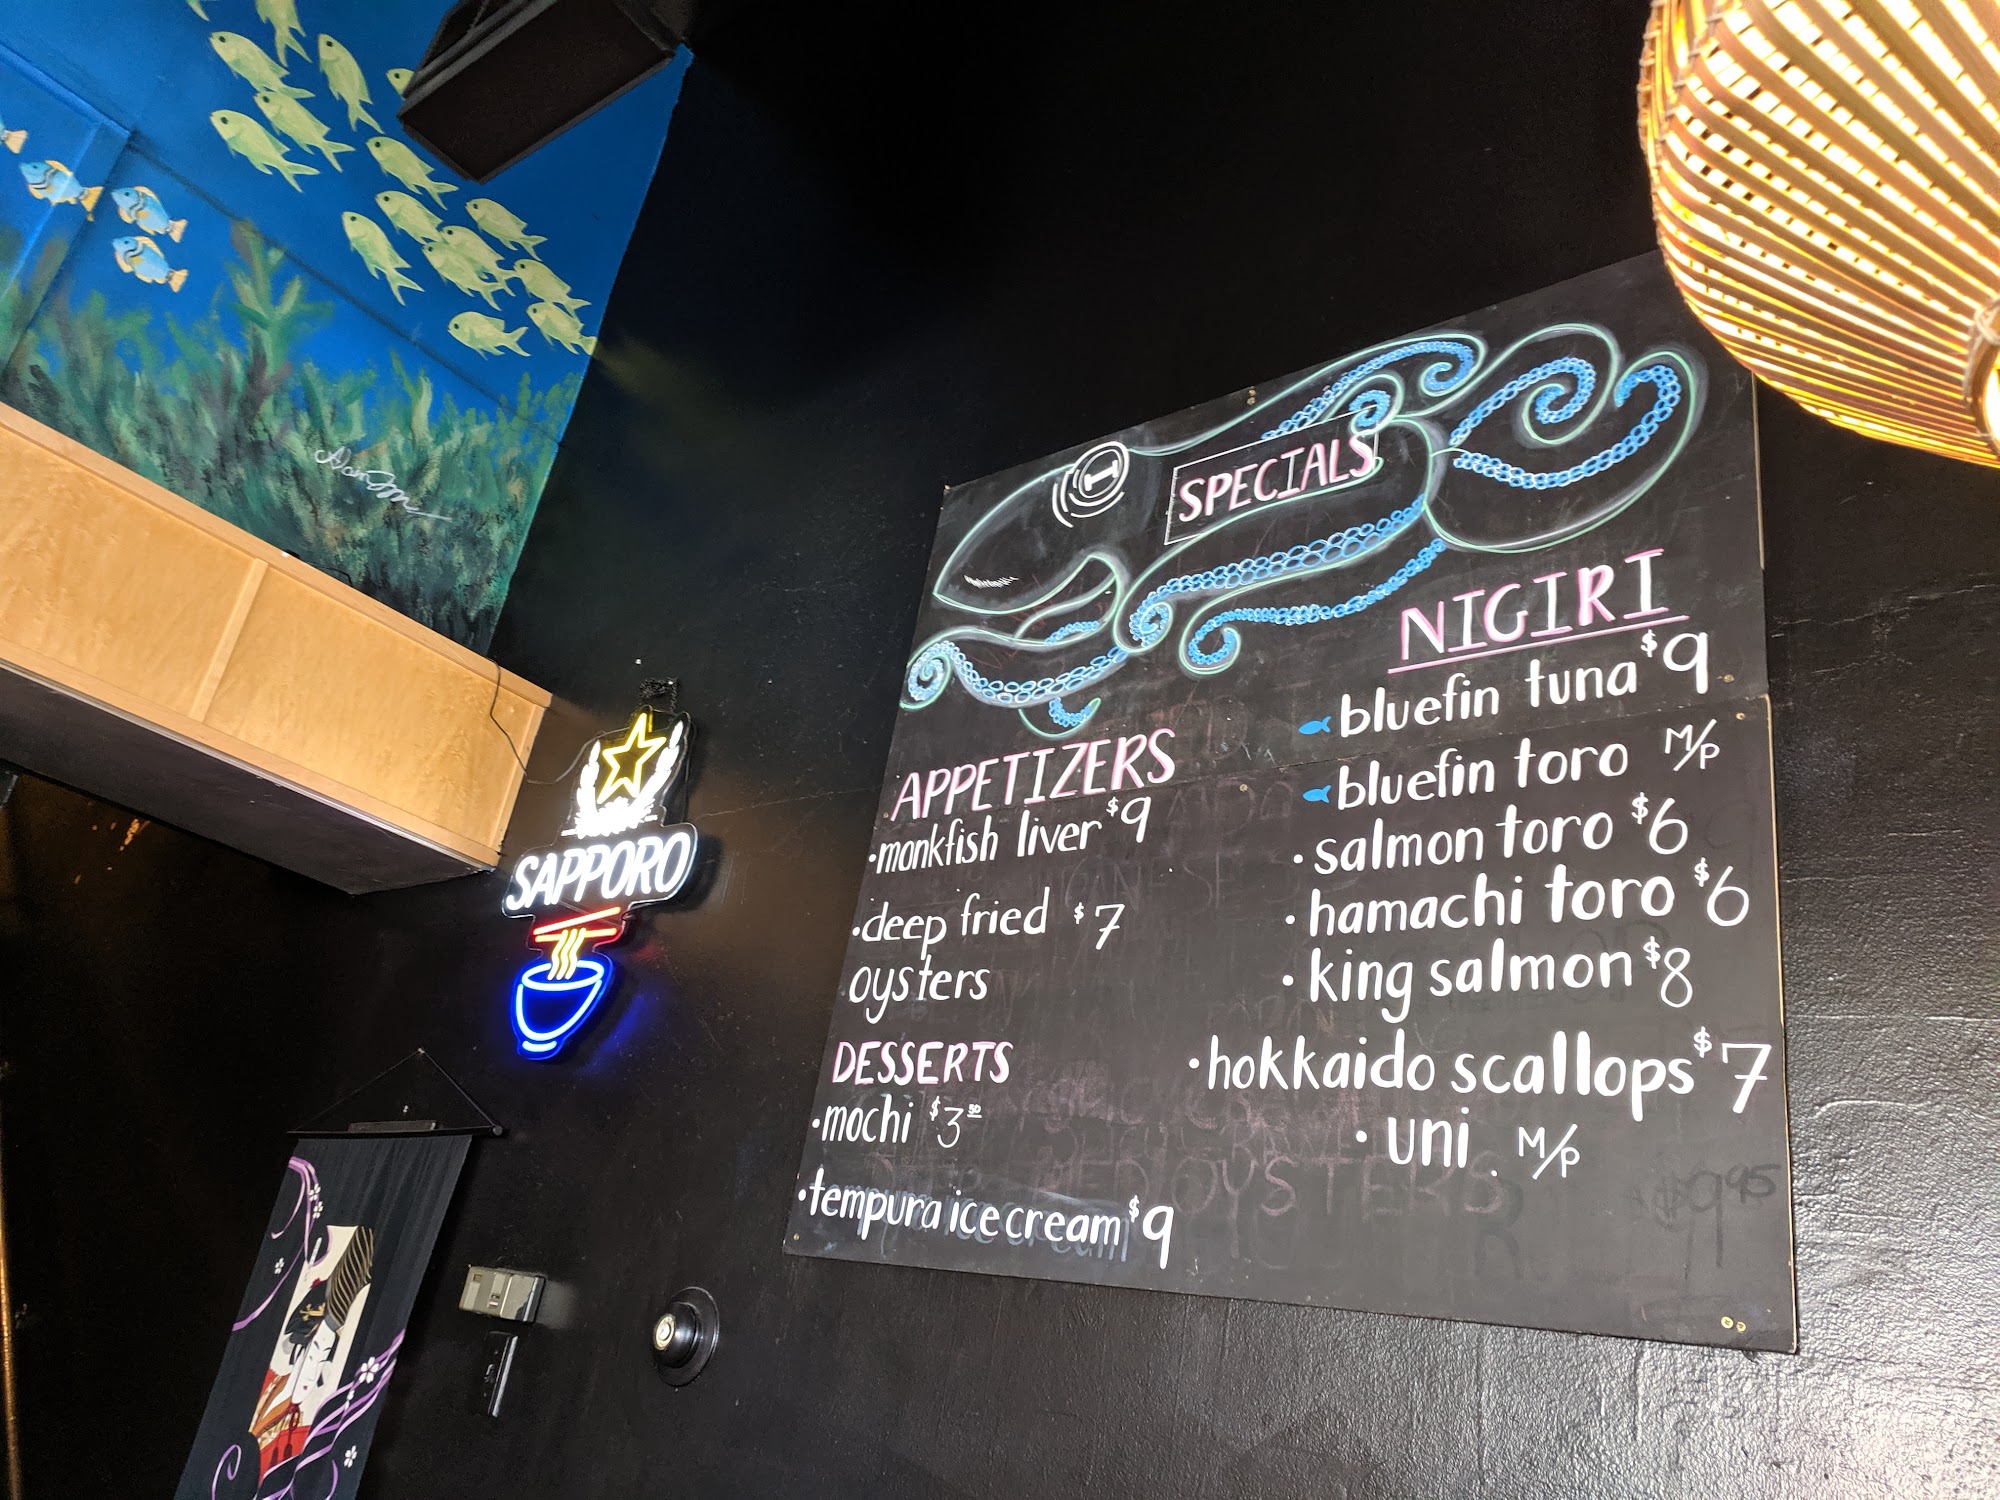 SPECIALS
APPETIZERS
·monkfish liver $9
·deep fried $7
oysters
DESSERTS
·mochi $3 50
·tempura ice cream $9
NIGIRI
bluefin tuna $9
bluefin toro M/P
·salmon toro $6
·hamachi toro $6
·king salmon $8
·hokkaido scallops $7
·uni. M/P
SAPPORO